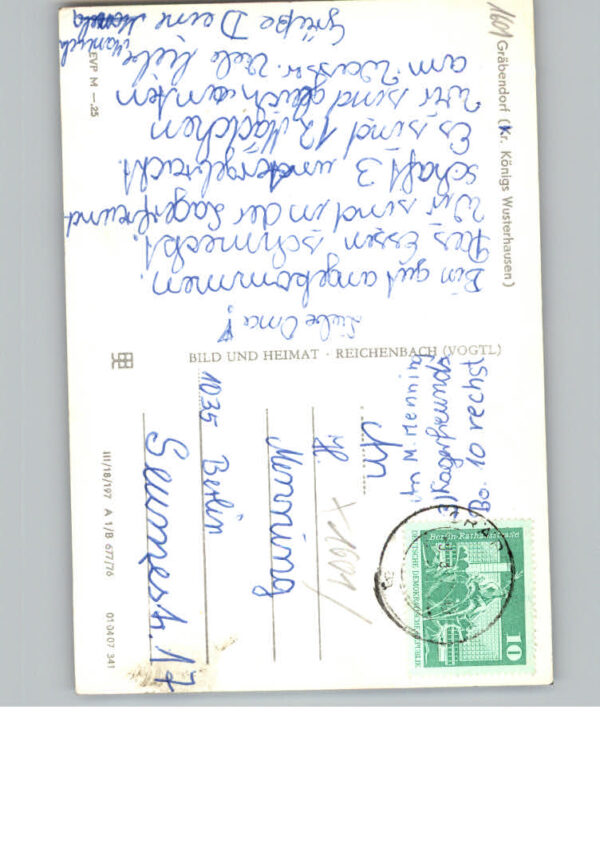 1601
Gräbendorf (Kr. Königs Wusterhausen)
Liebe Oma!
Bin gut angekommen.
Das Essen schmeckt.
Wir sind in der Lagerfreund-
schaft 3 untergebracht.
Es sind 12 Mädchen
Wir sind gleich unten
am Wasser. Viele liebe
Grüße Deine
EVP M —.25
BILD UND HEIMAT · REICHENBACH (VOGTL)
III/18/197 A 1/B 677/76 01 04 07 341
M. Henning
Lagerfreundsch.
Bo. 10 rechts
An
Henning
1035 Berlin
Seumestr. 17
x 1601/
Berlin-Rathausstraße
DEUTSCHE DEMOKRATISCHE REPUBLIK
10